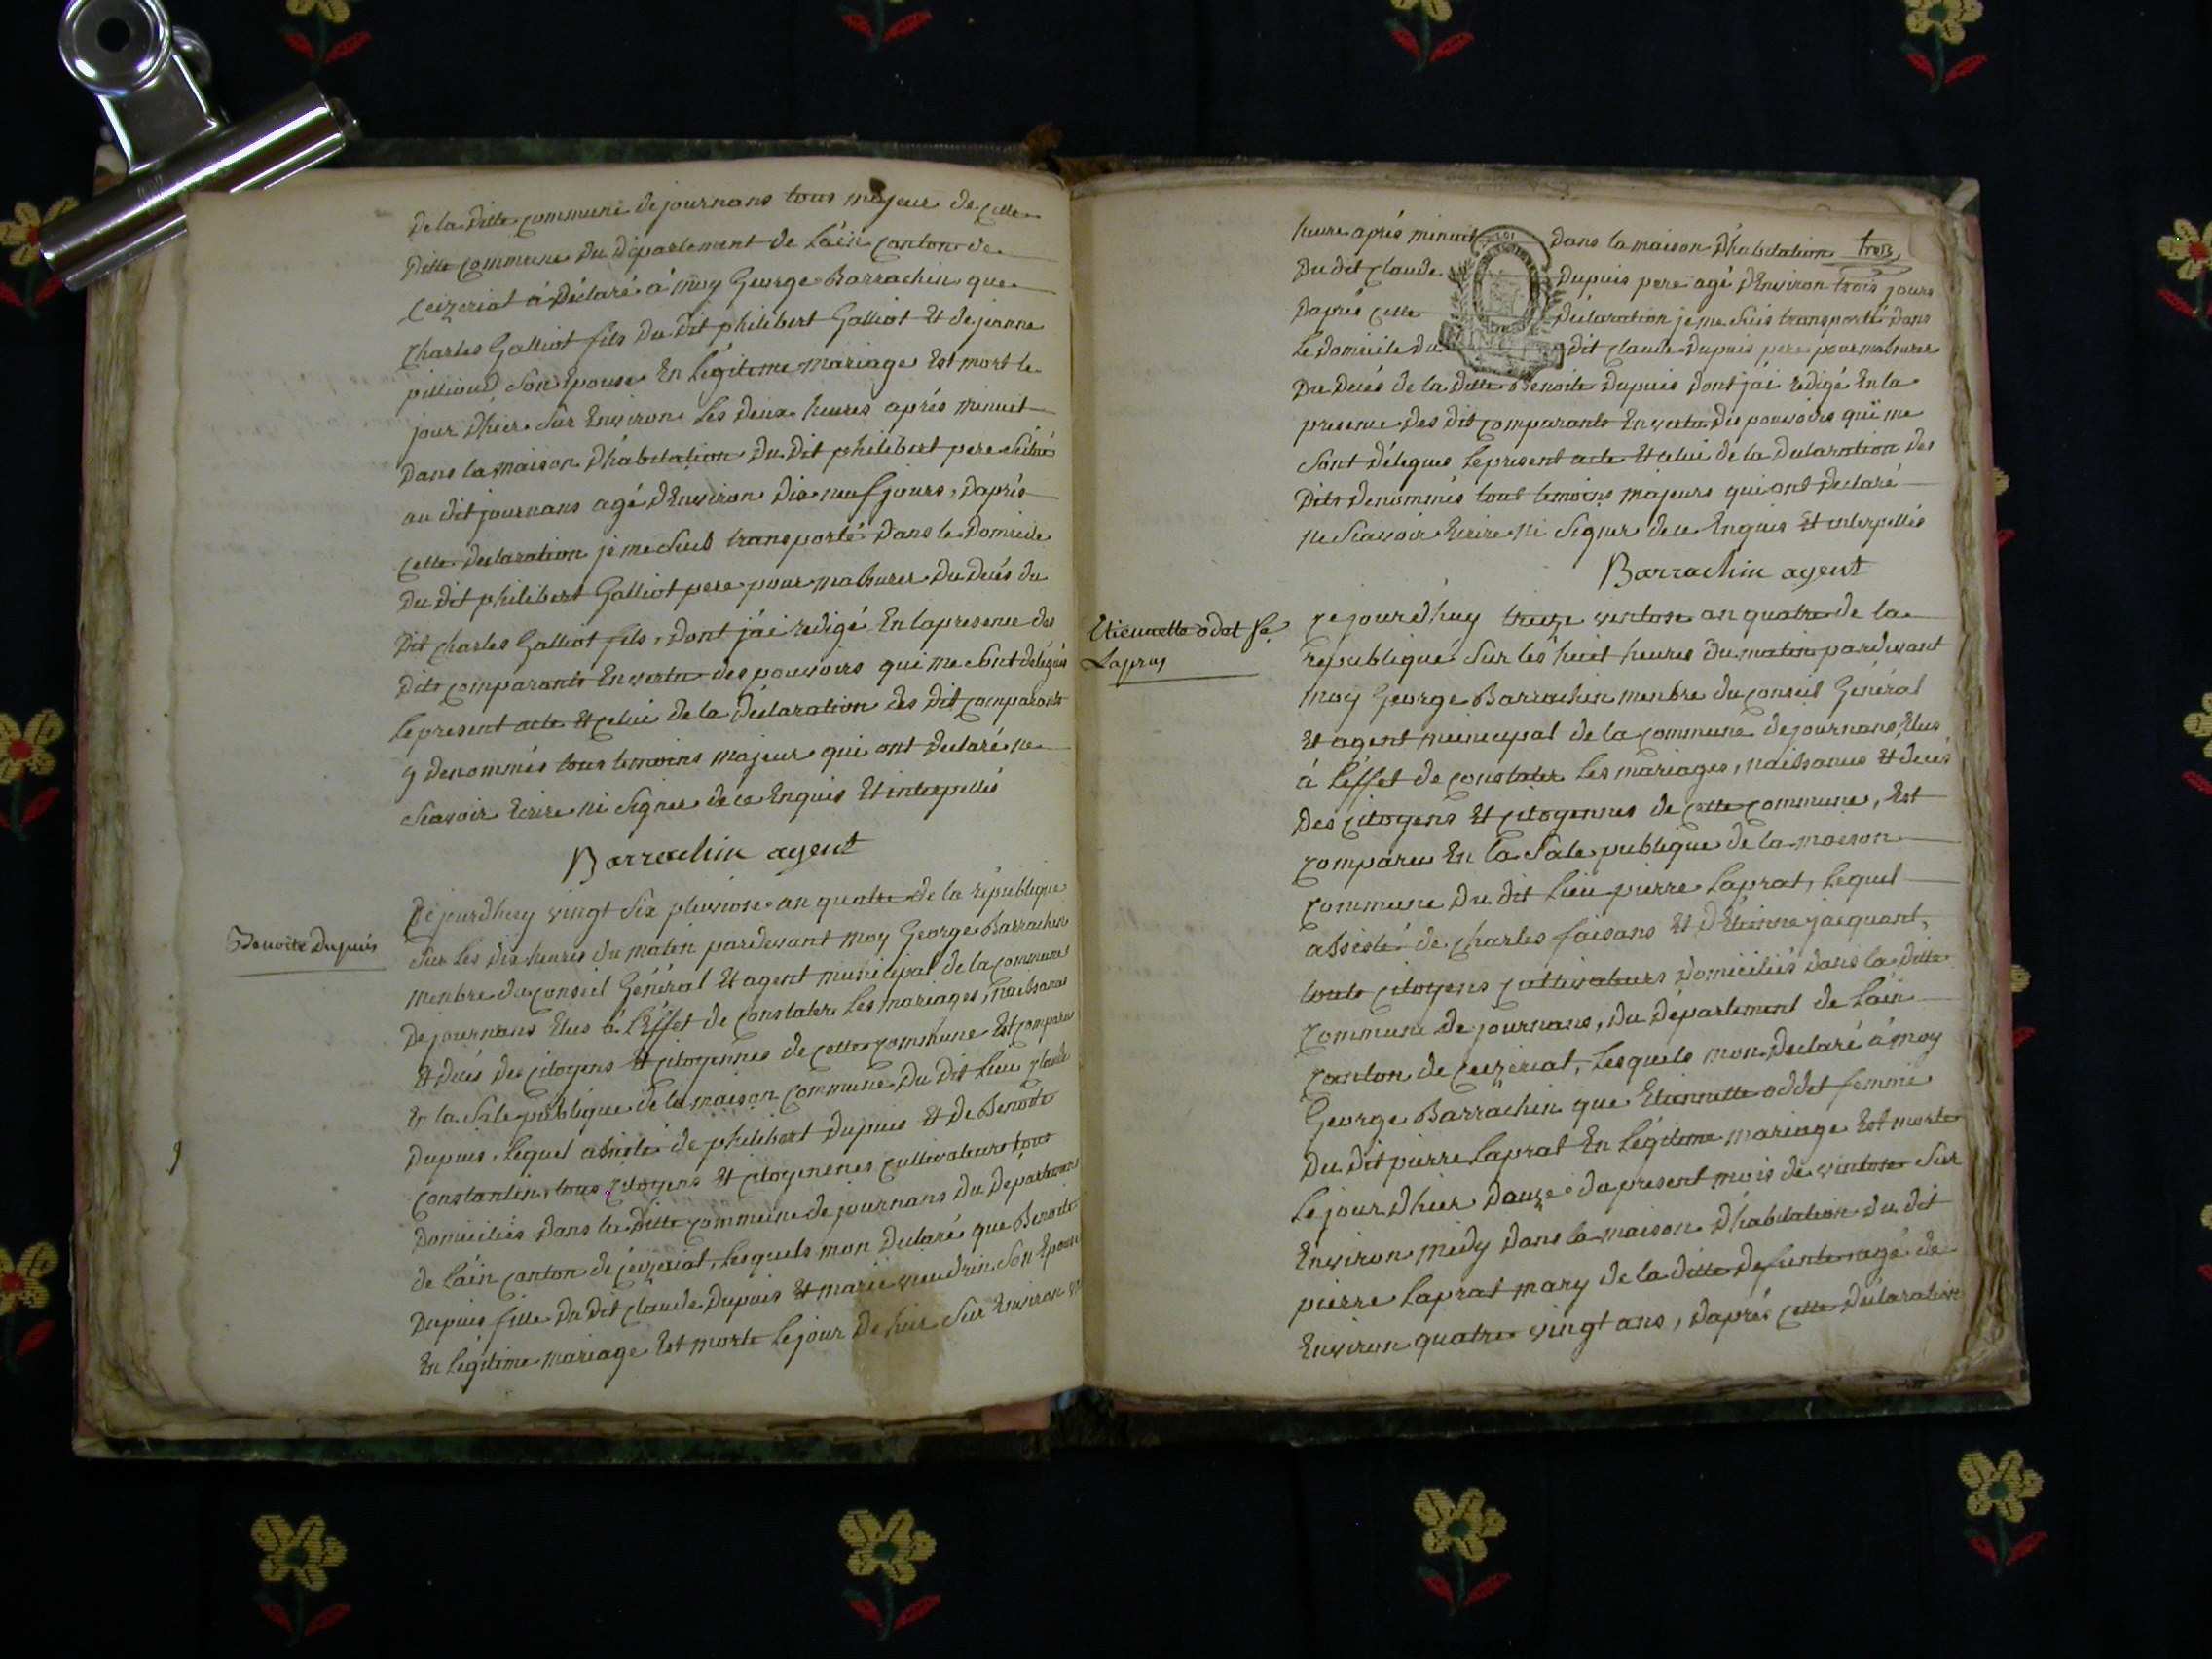 De la ditte commune de journans tous majeur de cette
ditte commune du département de L'ain canton de
Ceizeriat á déclaré á moy George Barrachin que
charles Galliot fils du dit philibert Galliot Et de jeanne
pillioud son Epouse En Légitime mariage Est mort le
jour d'hier sur Environ les deux heures aprés minuit
dans la maison d'habitation du dit philibert pere situé
au dit journans agé d'Environ dix neuf jours, d'aprés
cette declaration je me suis transporté dans le domicile
du dit philibert Galliot pere pour m'assurer du decés du
dit charles Galliot fils, dont j'ai redigé En la presence des
dits comparants En vertu des pouvoirs qui me sont délégués
le present acte Et celui de la déclaration des dit comparants
y denommés tous temoins majeur qui ont declaré ne
sçavoir Ecrire ni signer de ce Enquis Et interpellés
Barrachin agent
Benoite dupuis
Ce jourdhuy vingt six pluviose an quatre de la république
sur les dix heures du matin pardevant moy George Barrachin
menbre du conseil Général Et agent municipal de la commune
de journans Elus á L'Effet de constater les mariages, naissances
Et décés des citoyens Et citoyennes de cette commune Est comparu
En la sale publique de la maison commune du dit lieu claude
dupuis, lequel assisté de philibert dupuis Et de Benoite
constantin, tous citoyens Et citoyenenes cultivateurs tous
domiciliés dans la ditte commune de journans du département
de l'ain canton de céizeriat, lesquels m'on declaré que Benoite
dupuis fille du dit claude dupuis Et marie vieudrin son Epouse
En légitime mariage Est morte le jour de hier sur Environ une
trois
heure aprés minuit dans la maison d'habitation
du dit claude dupuis pere agé d'Environ trois jours
daprés cette déclaration je me suis transporté dans
le domicile du dit claude dupuis pere pour m'assurer
du decés de la ditte Benoite dupuis dont j'ai redigé En la
presence des dit comparants En vertu des pouvoirs qui me
sont délegués le present acte Et celui de la declaration des
dits denommés tout temoins majeurs qui ont declaré
ne sçavoir Ecrire ni signer de ce Enquis Et interpellés
Barrachin agent
Etiennette odet fe
Lapras
Ce jourd'huy treize ventose an quatre de la
republique sur les huit heures du matin pardevant
moy George Barrachin menbre du conseil Général
Et agent municipal de la commune de journans, Elus
á L'éffet de constater les mariages, naissances Et decés
des citoyens Et citoyennes de cette commune, Est
comparu En la sale publique de la maison
commune du dit lieu pierre Laprat, lequel
assisté de charles faisans Et d'Etienne jacquant,
touts citoyens cultivateurs domiciliés dans la ditte
commune de journans, du département de l'ain
canton de ceizeriat, lesquels m'on declaré á moy
George Barrachin que Etiennette oddet femme
du dit pierre Laprat En légitime mariage Est morte
le jour d'hier douze du present mois de ventose sur
Environ midy dans la maison d'habitation du dit
pierre Laprat mary de la ditte defunte agé de
Environ quatre vingt ans, d'aprés cette déclaration